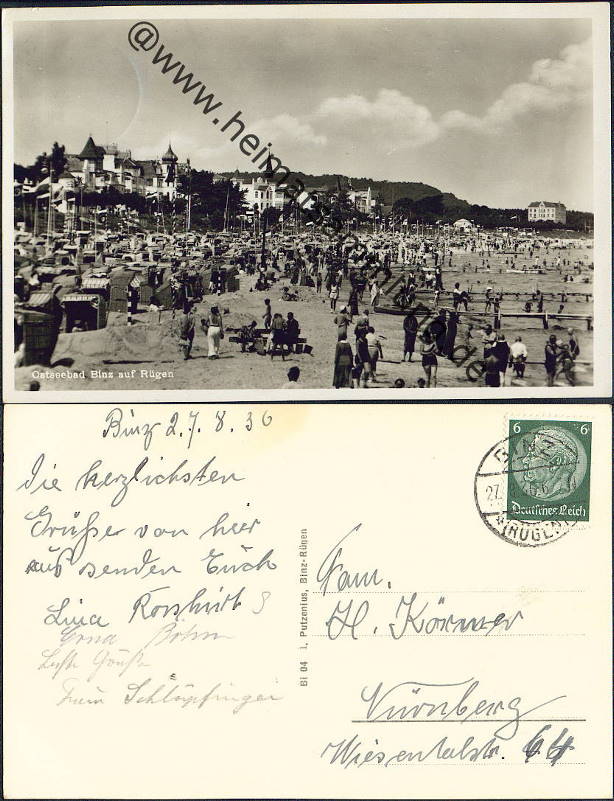 @www.heimatsammlung.de
Ostseebad Binz auf Rügen
Binz 27. 8. 36
Die herzlichsten
Grüße von hier
aus senden Euch
Lina
Erna Böhm
Frau Schlöpfinger
Bi 04 i. Putzenius, Binz-Rügen
6 6
Deutsches Reich
BINZ
27.
(RÜGEN)
Fam.
H. Körner
Nürnberg
Wiesentalstr. 64